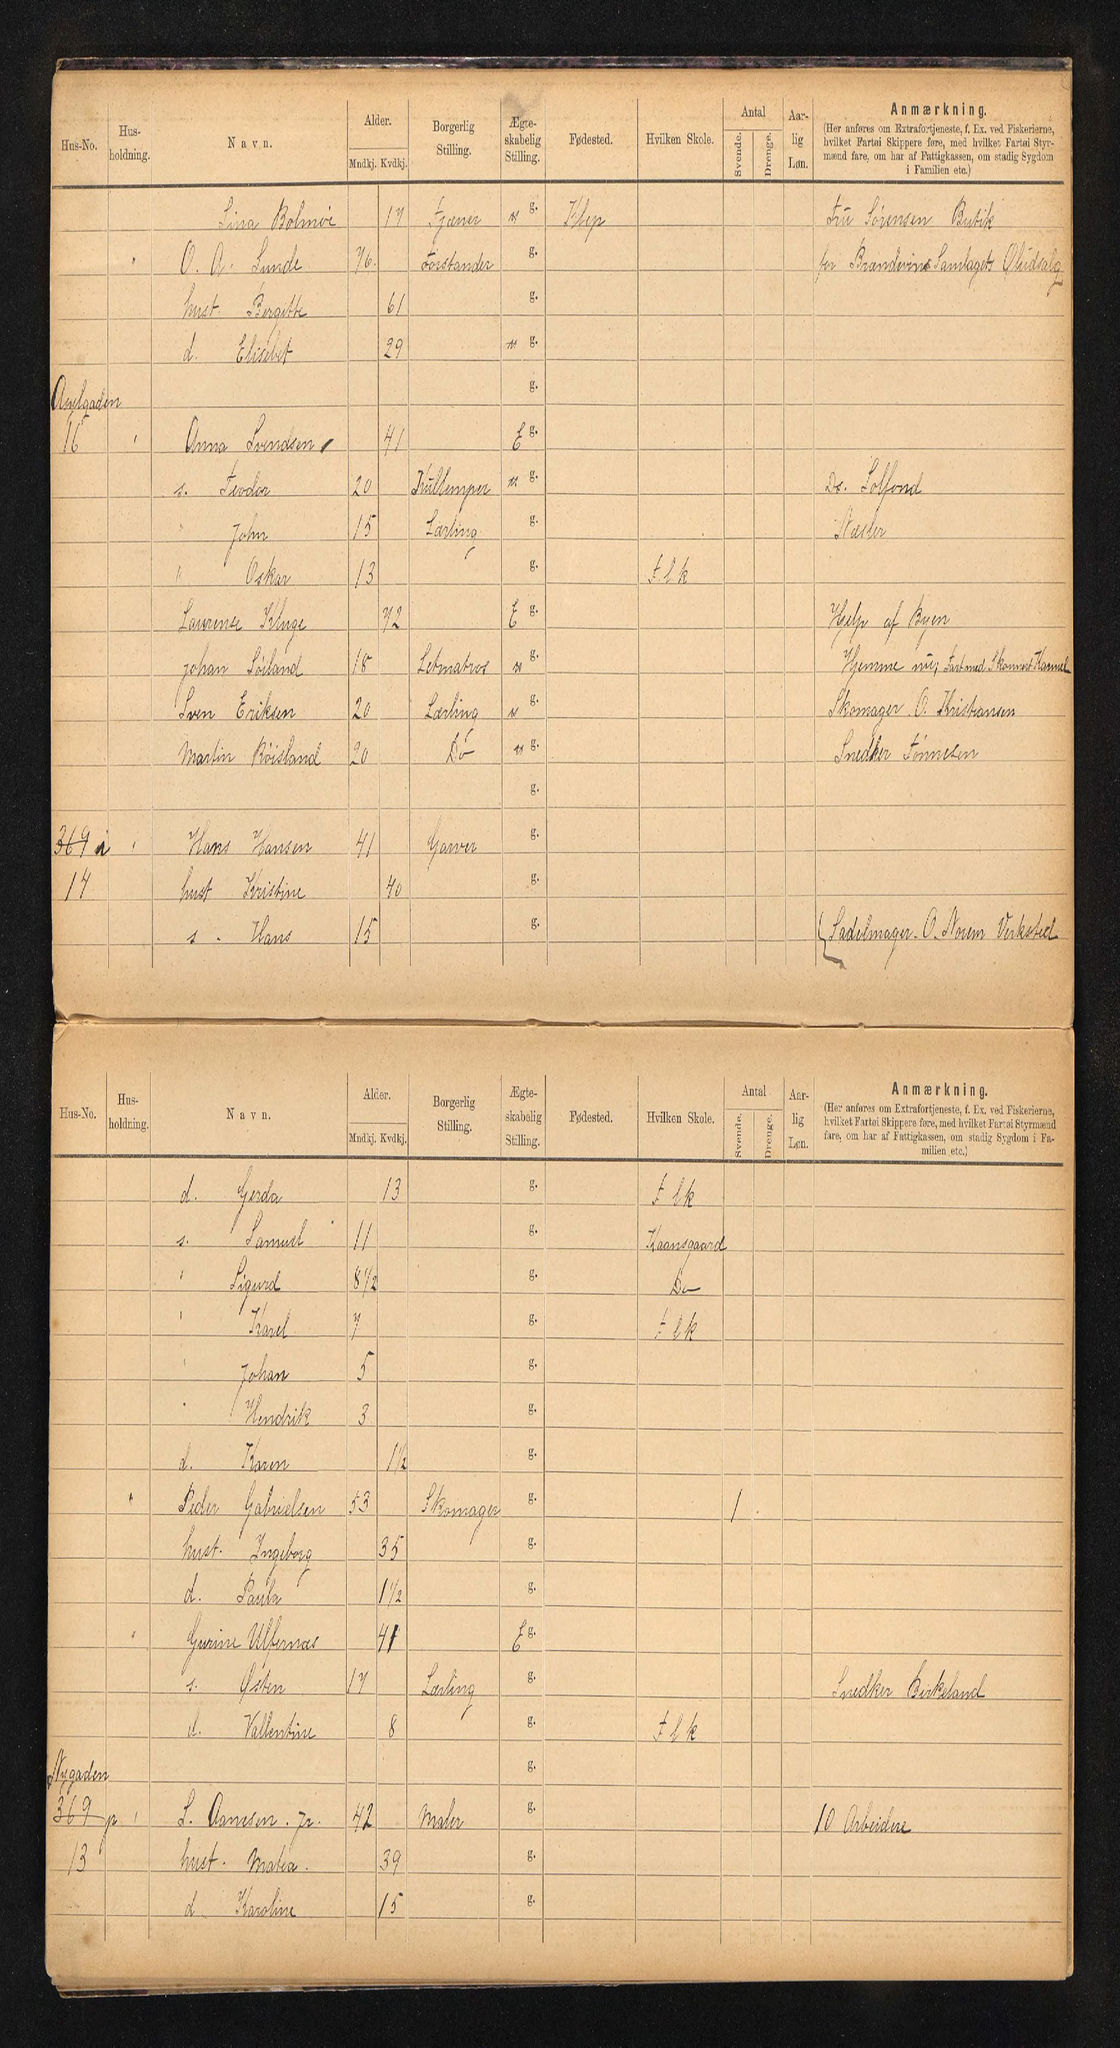 Hus-No. Hus-holdning. Navn. Alder. Mndkj. Kvdkj. Borgerlig Stilling. Ægte-skabelig Stilling. Fødested. Hvilken Skole. Antal Svende. Drenge. Aar-lig Løn. Anmærkning.
(Her anføres om Extrafortjeneste, f. Ex. ved Fiskerierne, hvilket Fartøi Skippere føre, med hvilket Fartøi Styrmænd fare, om har af Fattigkassen, om stadig Sygdom i Familien etc.)
Sina 17 Tjener u g. Klep Fru Sørensen Butik
" O. A. Sunde 76. Forstander g. for Brændevins Samlagets Øludsalg
hust. Bergitte 61 g.
d. Elisebet 29 u g.
Axelgaden g.
16 " Anna Svendsen 41 E g.
s. Teodor 20 Kullemper u g. Ds. Solfond
" John 15 Lærling g. Næsler
" Oskar 13 g. f. l k
Laurense Kluge 72 E g. Hjelp af Byen
Johan Söiland 18 Letmatros u g. Hjemme nu, Fart med Skonnert
Sven Eriksen 20 Lærling u g. Skomager O. Kristiansen
Martin Röisland 20 Do u g. Snedker Tönnesen
g.
369 a " Hans Hansen 41 Garver g.
14 hust Kristine 40 g.
s. Hans 15 g. Sadelmager O. Norem Verksted
Hus-No. Hus-holdning. Navn. Alder. Mndkj. Kvdkj. Borgerlig Stilling. Ægte-skabelig Stilling. Fødested. Hvilken Skole. Antal Svende. Drenge. Aar-lig Løn. Anmærkning.
(Her anføres om Extrafortjeneste, f. Ex. ved Fiskerierne, hvilket Fartøi Skippere føre, med hvilket Fartøi Styrmænd fare, om har af Fattigkassen, om stadig Sygdom i Familien etc.)
d. Gerda 13 g. f l k
s. Samuel 11 g. Kaansgaard
" Sigurd 8 1/2 g. Do
" Karel 7 g. f l k
" Johan 5 g.
" Hendrik 3 g.
d. Karen 1 1/2 g.
" Peder Gabrielsen 53 Skomager g. 1
hust. Ingeborg 35 g.
d. Paula 1 1/2 g.
" Gurine Ulfernæs 41 E g.
s. Østen 17 Lærling g. Snedker Birkeland
d. Vallentine 8 g. f l k
Nygaden g.
369 p " L. Aanesen. jr. 42 Maler g. 10 Arbeidere
13 hust. Matea. 39 g.
d Karoline 15 g.